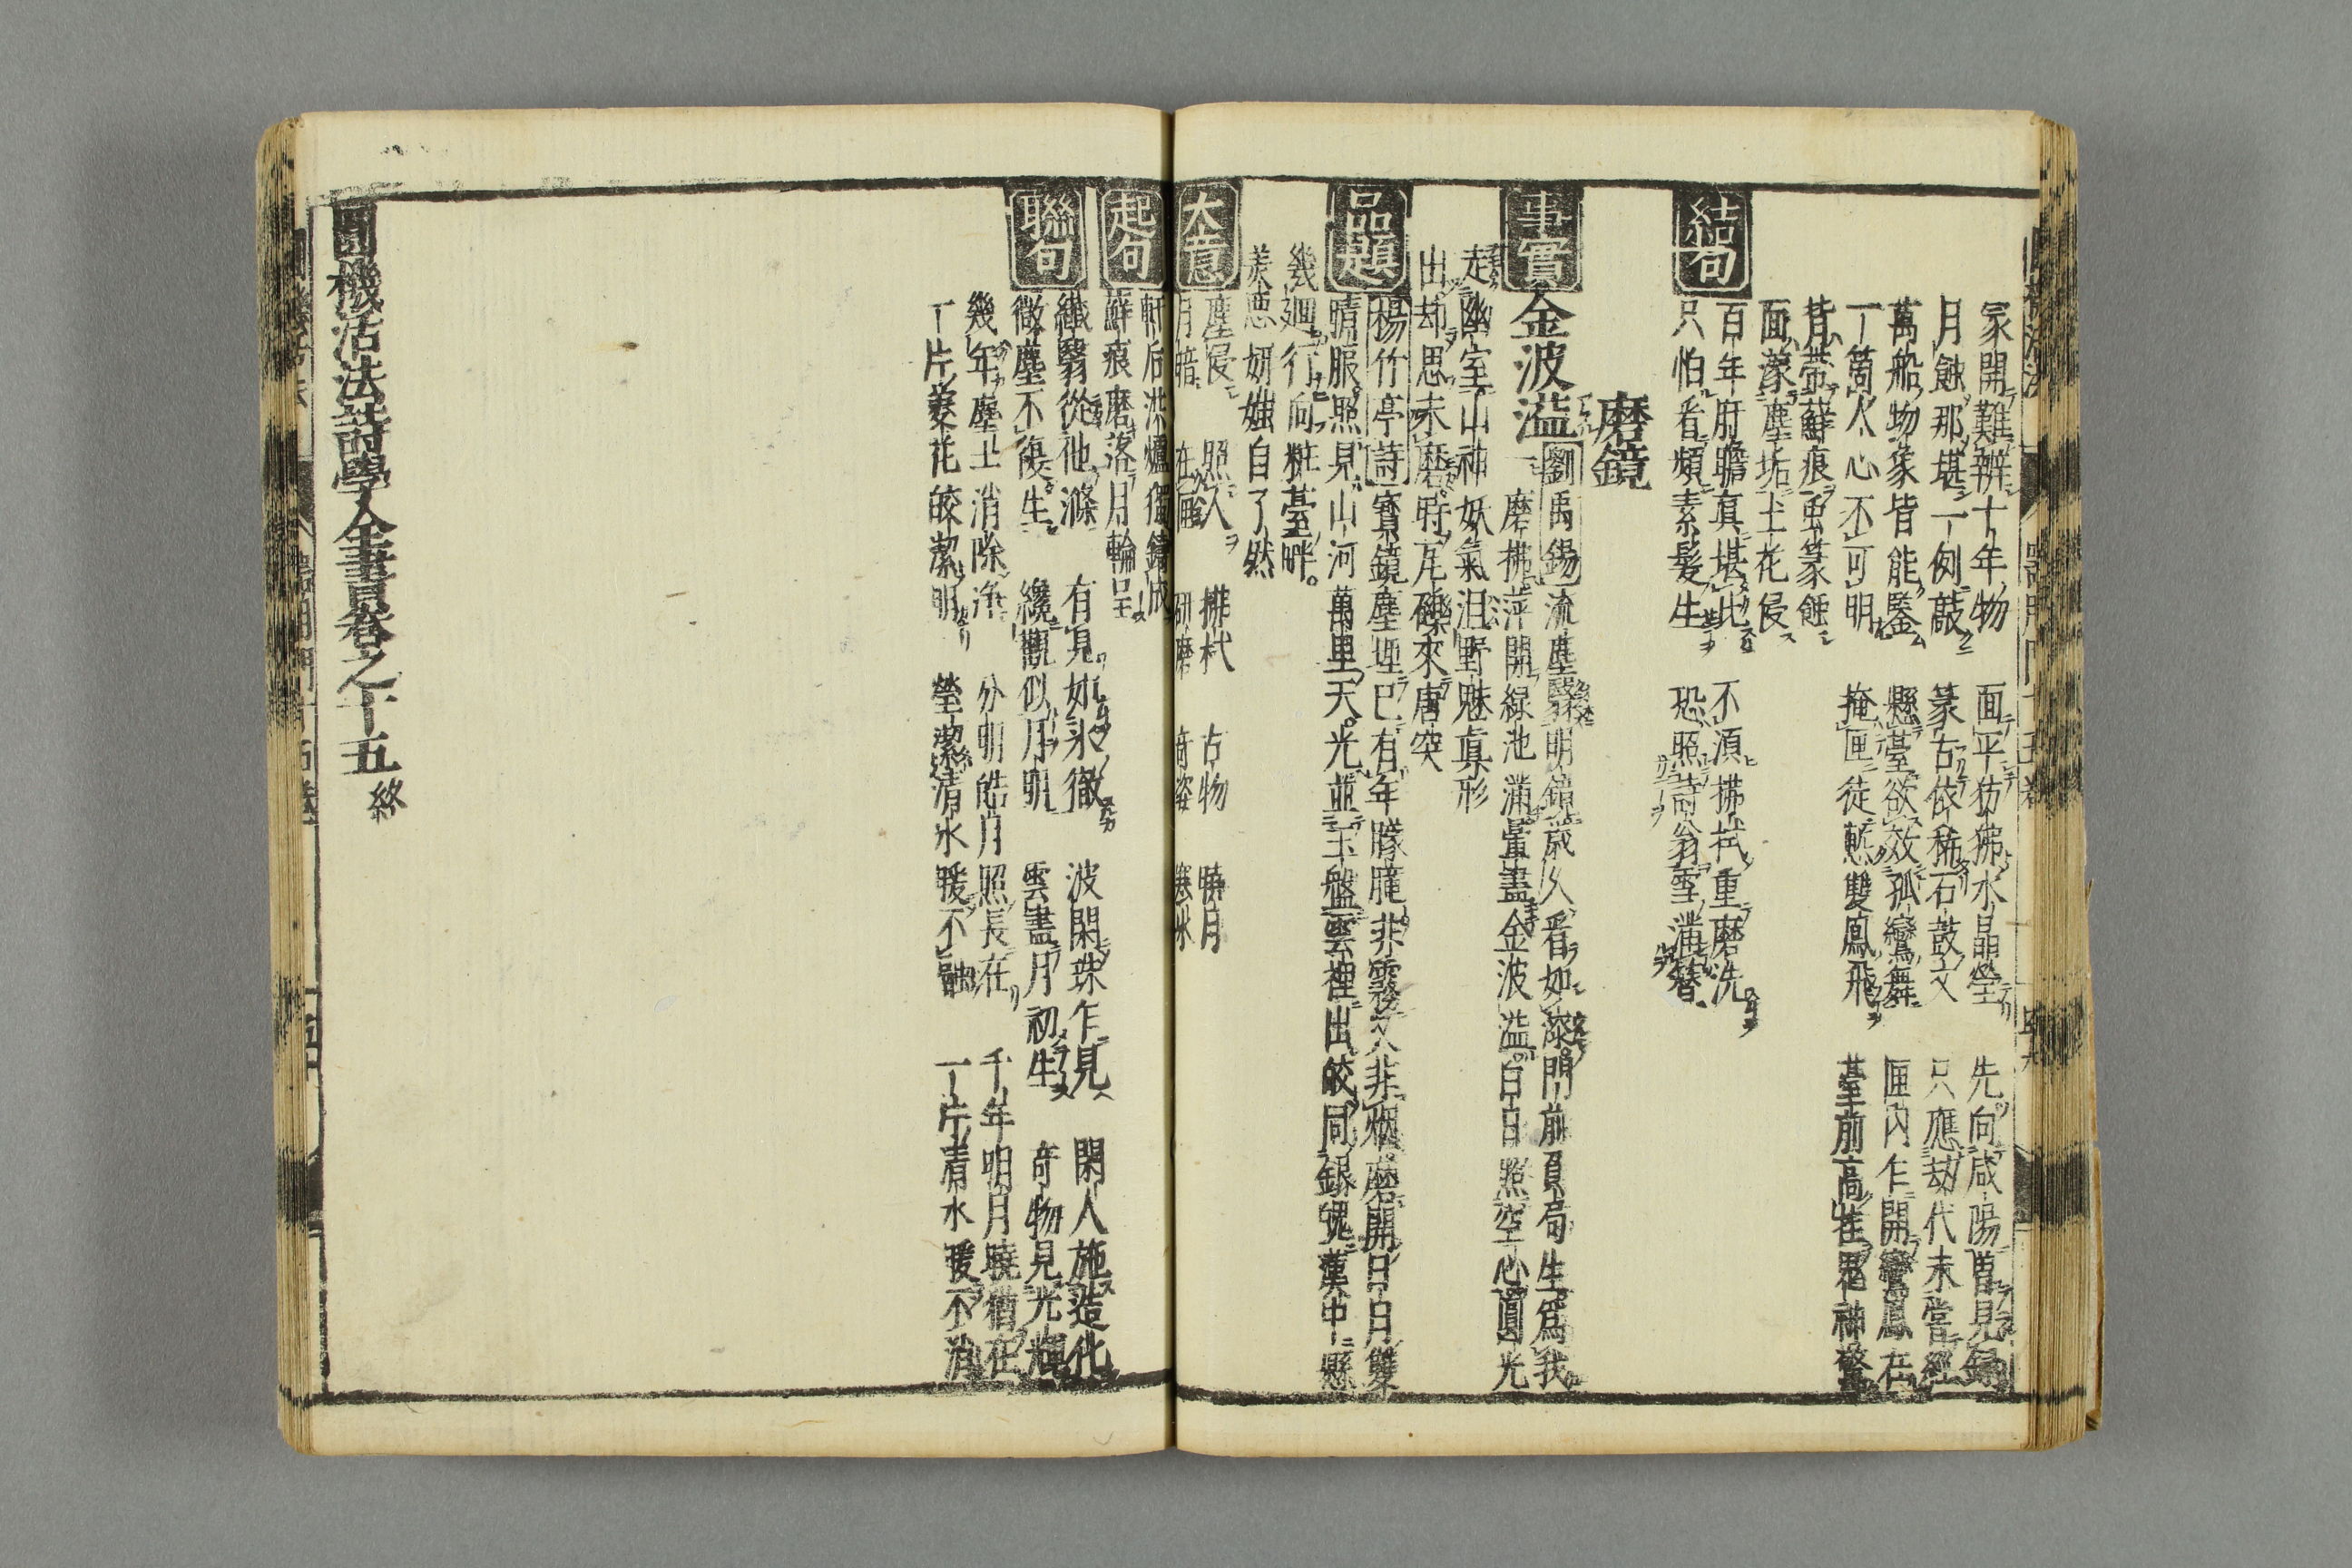 冢開難辨十年物 面平彷彿水晶瑩 先向咸陽曾見錄
月蝕那堪一例敲 篆古依稀石鼓文 只應劫代未嘗經
萬船物象皆能鑒 懸臺欲效孤鸞舞 匣內乍開鸞鳳在
一箇人心不可明 掩匣徒慙雙鳳飛 臺前高挂鬼神驚
背帶蘚痕虫篆蝕
面濛塵垢土花侵
結句
百年肝膽真堪比 不須拂拭重磨洗
只怕看頻素髮生 恐照詩翁雪滿簪
磨鏡
事實
金波溢 劉禹錫 流塵翳明鏡歲久看如漆門前負局生為我
一磨拂萍開綠池滿暈盡金波溢白日照空心圓光
走幽室山神妖氣沮野魅真形
出却思未磨時瓦礫來唐突
品題
楊竹亭詩 寶鏡塵埋已有年朦朧非霧又非烟磨開日月雙
晴服照見山河萬里天光並玉盤雲裡出皎同銀魄漢中縣
幾廻行向粧臺畔
美惡妍媸自了然
大意
塵侵 照人 拂拭 古物 曉月
月暗 在匣 研磨 奇姿 寒冰
軒后洪爐獨鑄成
起句
蘚痕磨落月輪呈
聯句
纖翳從他滌 有見如氷徹 波閑珠乍見 閑人施造化
微塵不復生 纔觀似月明 雲盡月初生 奇物見光輝
幾年塵土消除淨 分明皓月照長在 千年明月曉猶在
一片菱花皎潔明 瑩潔清氷暖不融 一片清水暖不消
圓機活法詩學全書卷之十五 終